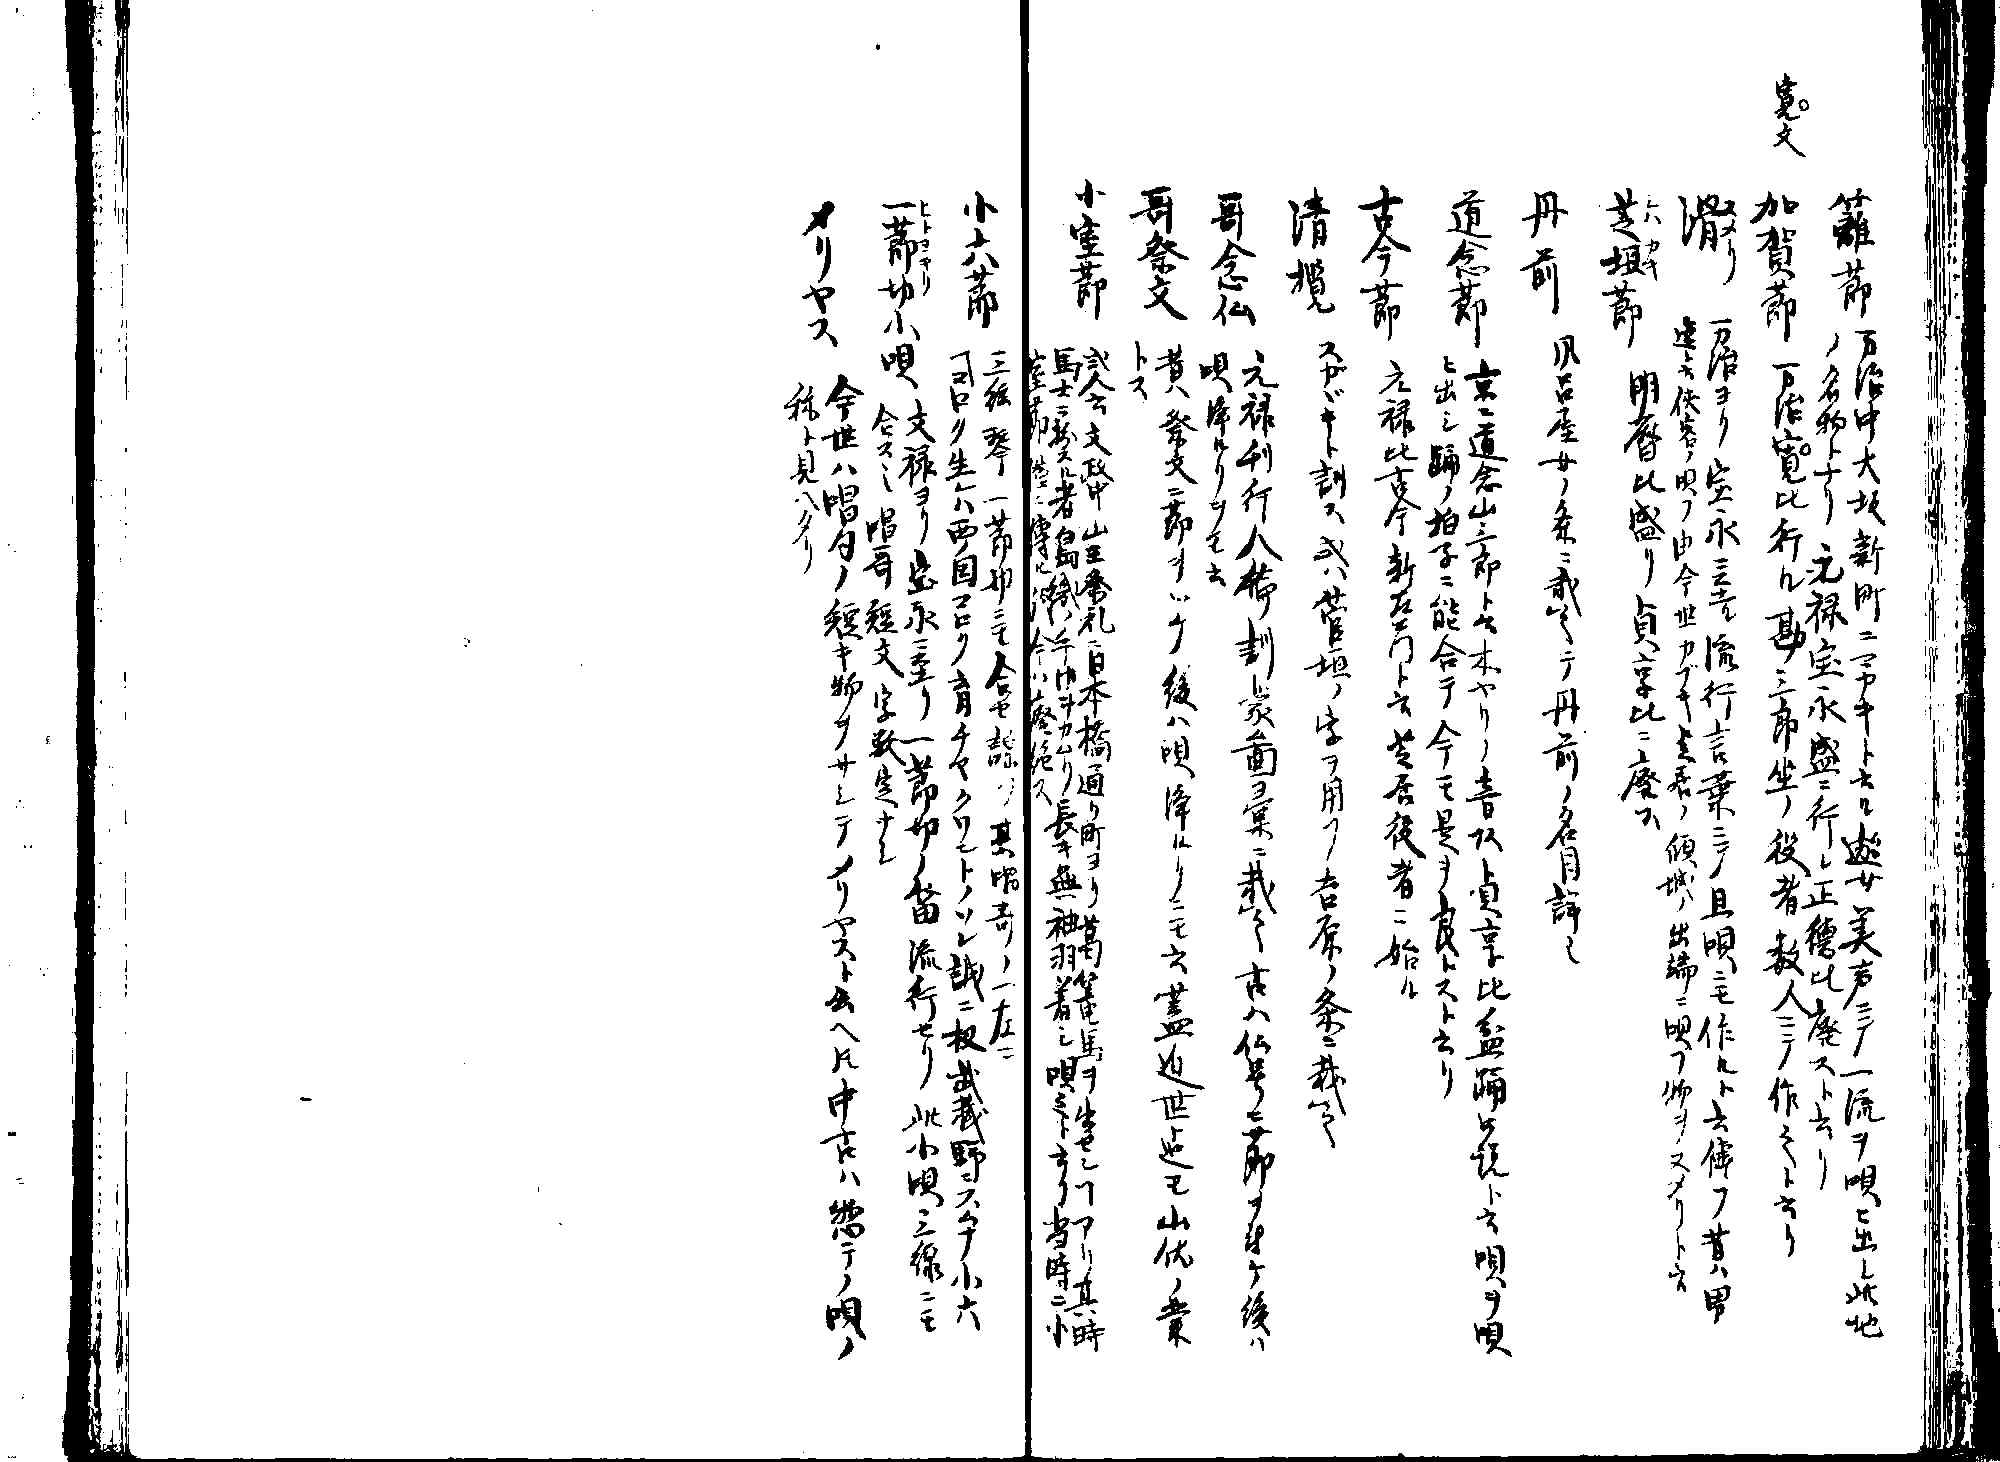 寛文
籬節 万治中大坂新町ニマガキト云ル遊女美声ニテ一流ヲ唄ヒ出シ此地
ノ名物トナリ元禄宝永盛ニ行レ正徳比廃スト云リ
加賀節 万治寛比行ル勘三郎坐ノ役者数人ニテ作之ト云リ
滑 万治ヨリ宝永ニ至テ流行言葉ニテ且唄ニモ作ルト云傳フ昔ハ男
達云侠客ノ唄フ由今世カブキ芝居ノ傾城ノ出端ニ唄フ物ヲヌメリト云
ヌメリ
芝垣節 明暦比盛リ貞享比ニ廃ス
シバカキ
丹前 風呂屋女ノ条ニ載之テ丹前ノ名目詳也
道念節 京ニ道念山三郎ト云木ヤリノ音頭貞享比盆踊口説ト云唄ヲ唄
ヒ出シ踊ノ拍子ニ能合テ今モ是ヲ良トスト云リ
古今節 元禄比古今新左エ門ト云芝居役者ニ始ル
清攬 スガガキト訓ス或ハ菅垣ノ字ヲ用フ吉原ノ条ニ載之
哥念仏 元禄刊行人倫訓蒙圖彙ニ載之古ハ仏号ニ節ヲ付ケ後ハ
唄浄ルリヲモ云
哥祭文 昔ハ祭文ニ節ヲツケ後ハ唄浄ルリニモ云蓋近世迄モ山伏ノ業
トス
小室節 或人云文政中山王祭礼ニ日本橋通リ町ヨリ葛篭馬ヲ出セシコアリ其時
馬士ニ扮スル者島縮ノ手巾ヲカムリ長キ無袖羽着シ唄之ト云リ当時ニ小
室節僅ニ傳ル歟今ハ廃絶ス
三絃琴一節切ニモ合セ謡フ其唱哥ノ一左ニ
小六節 コロク生レハ西国コロク育チヤクワントノソレ誠ニ扨武蔵野ニスタ小六
一節切小唄 文禄ヨリ宝永ニ至リ一節切ノ笛流行セリ此小唄三線ニモ
ヒトヨキリ
合ス也唱哥短文字数定ナシ
メリヤス 今世ハ唱句ノ短キ物ヲサシテメリヤスト云ヘ𪜈中古ハ惣テノ唄ノ
称ト見ヘタリ